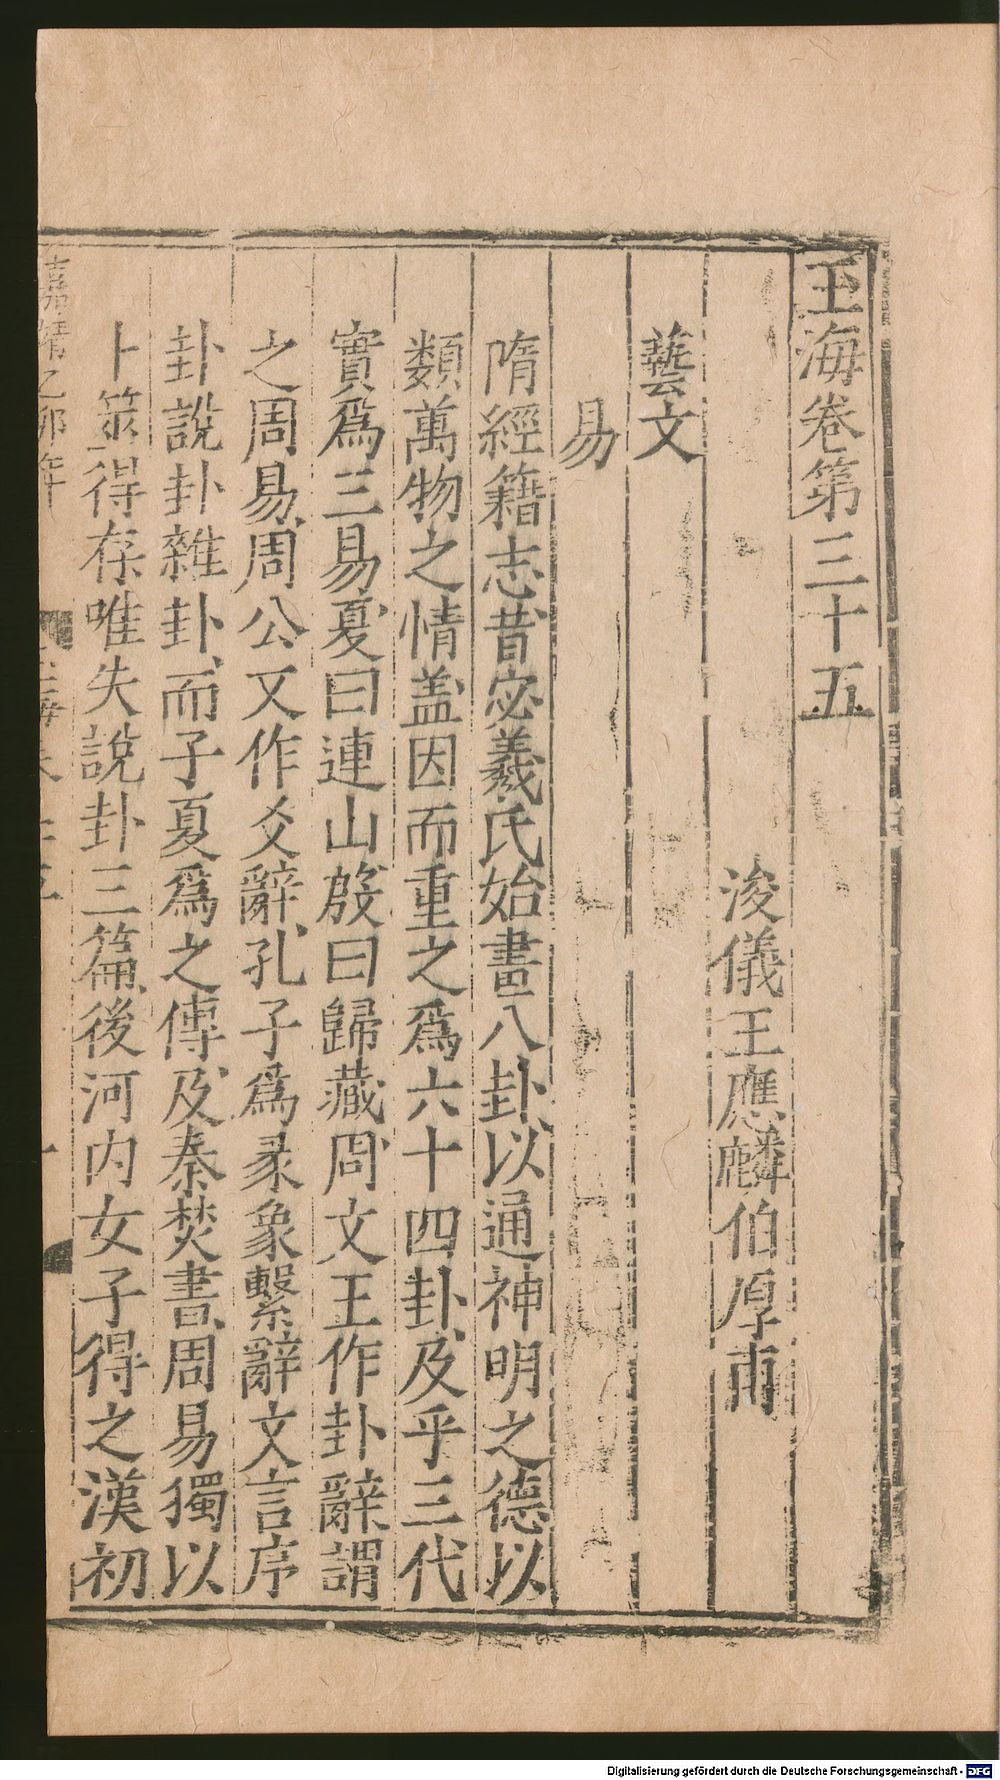 玉海卷第三十五
浚儀王應麟伯厚甫
藝文
易
隋經籍志昔宓羲氏始畫八卦以通神明之德以
類萬物之情盖因而重之爲六十四卦及乎三代
實爲三易夏曰連山殷曰歸藏周文王作卦辭謂
之周易周公又作爻辭孔子爲彖象繫辭文言序
卦說卦雜卦而子夏爲之傳及秦焚書周易獨以
卜筮得存唯失說卦三篇後河内女子得之漢初
嘉靖乙卯年
Digitalisierung gefördert durch die Deutsche Forschungsgemeinschaft - DFG